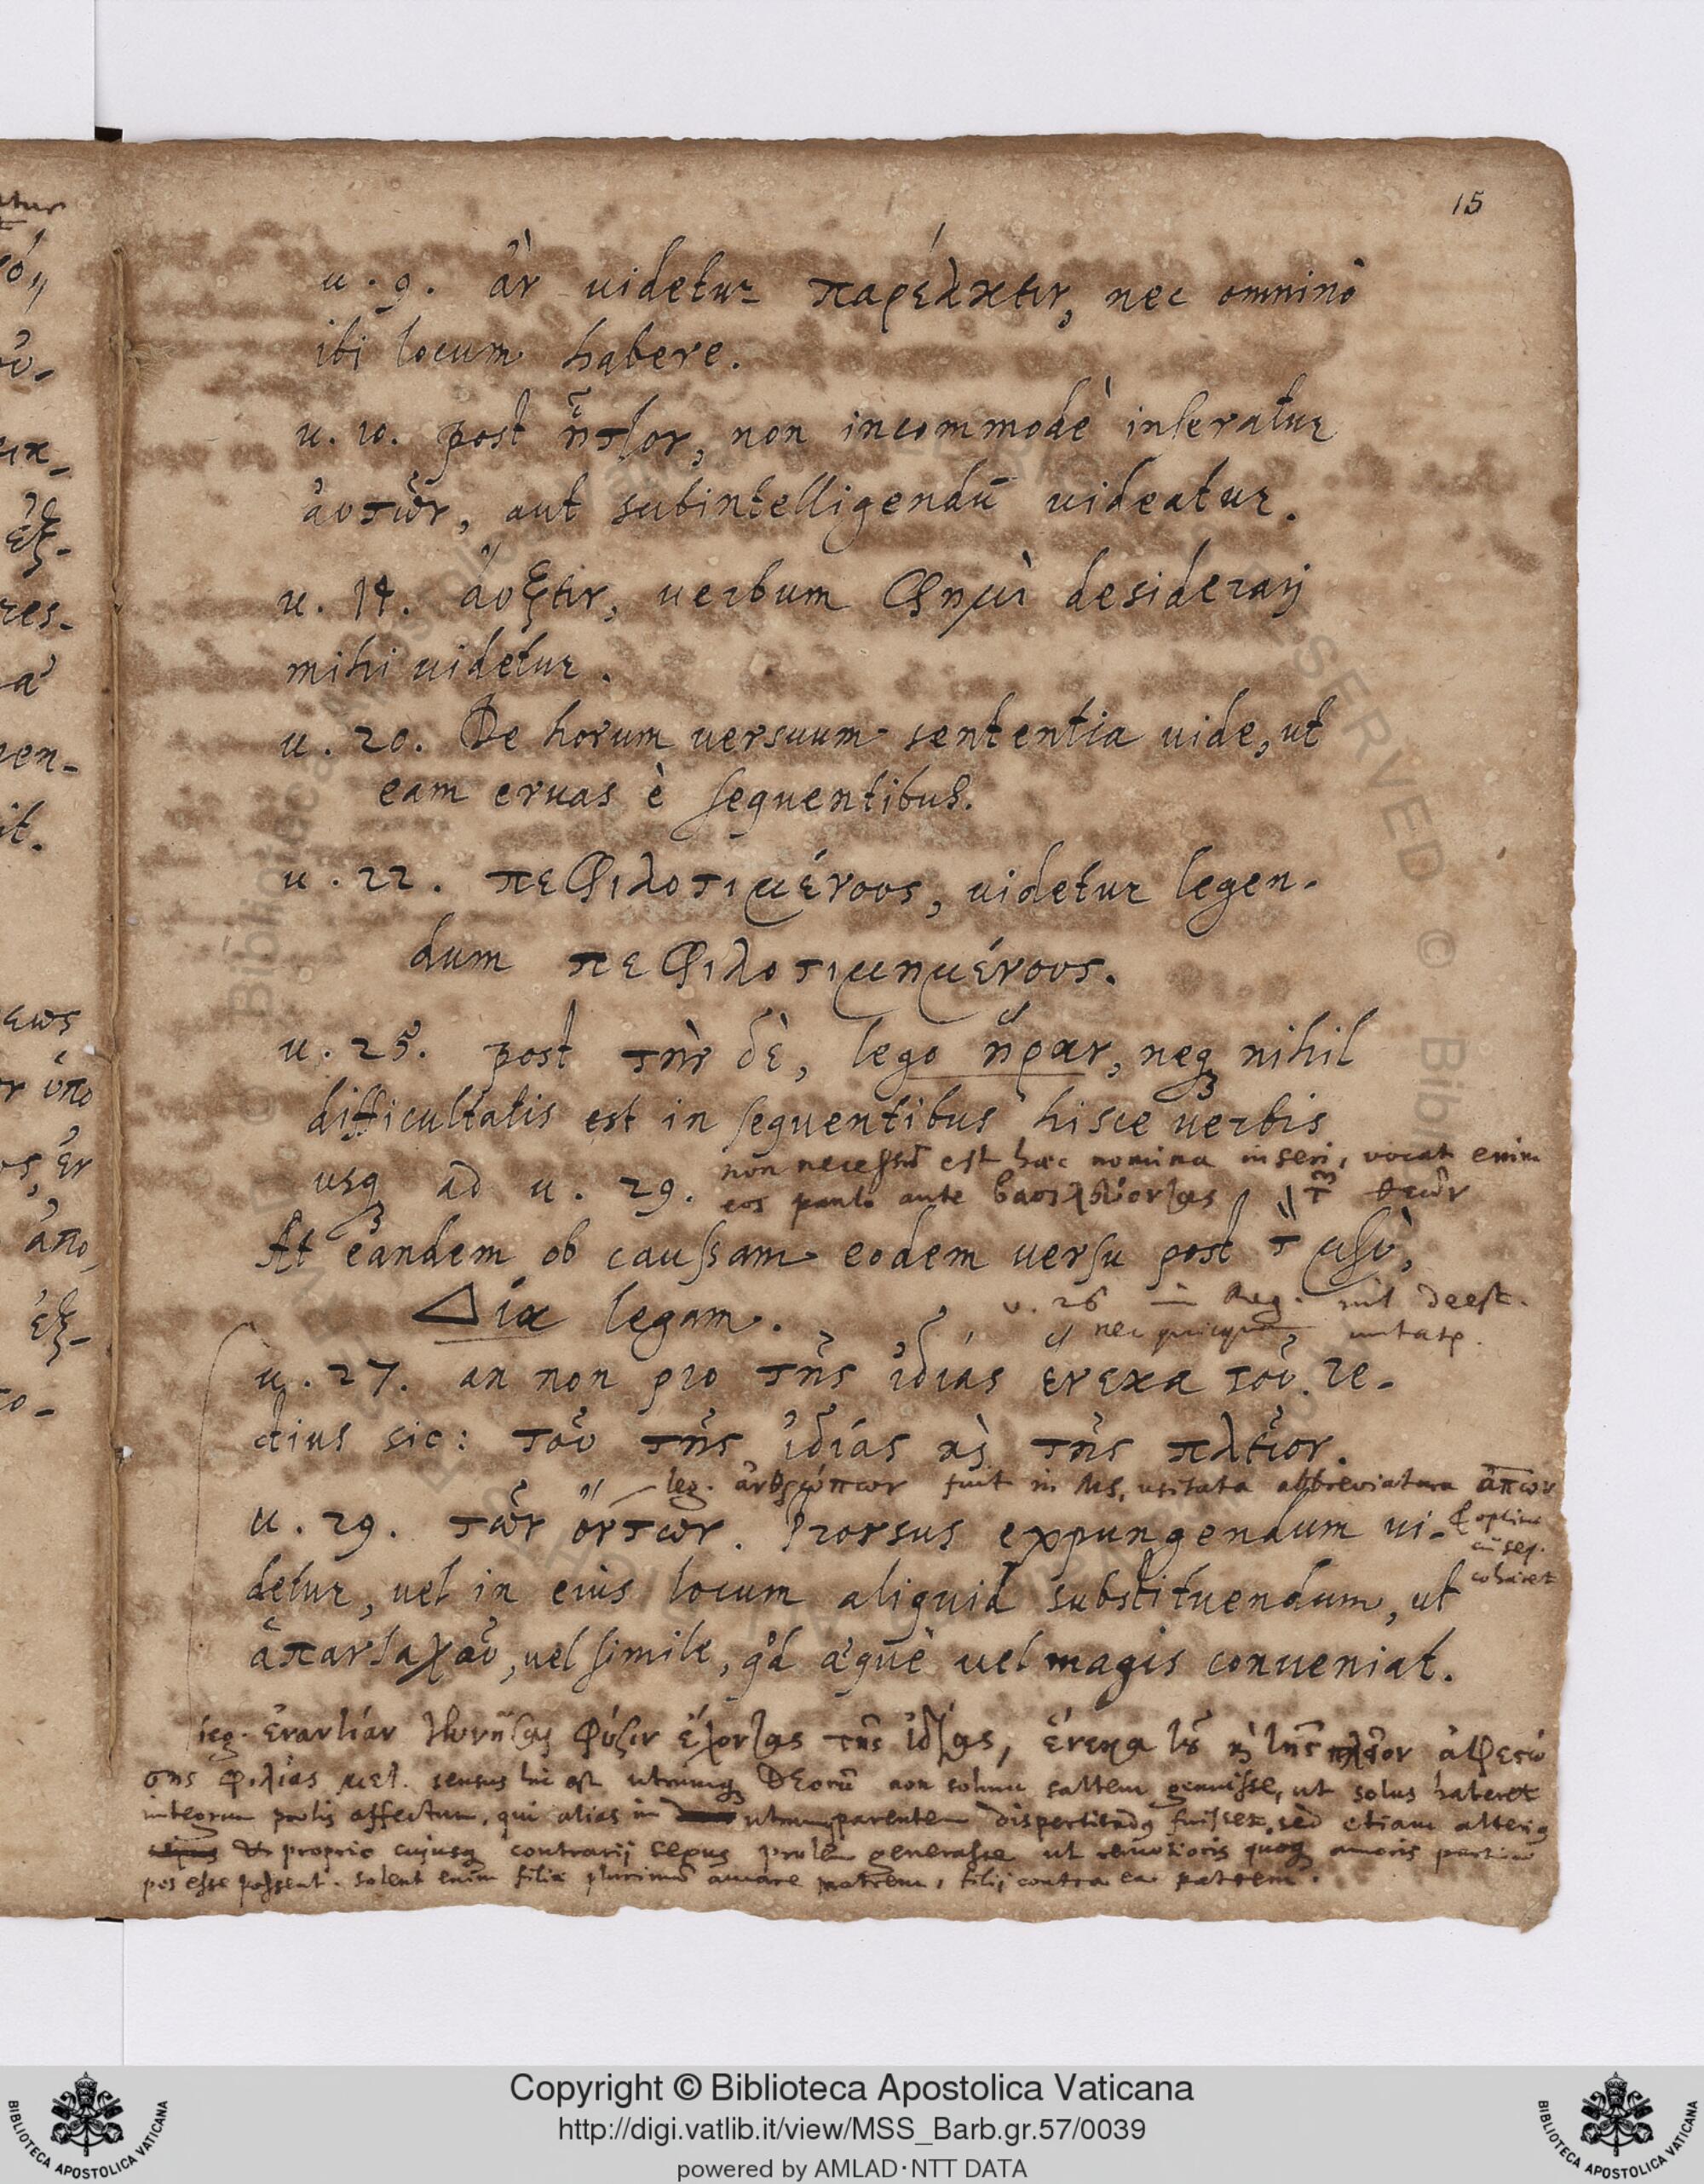 15
u. 9. ἂν videtur παρέλκειν, nec omninò
ibi locum habere.
u. 10. post ἧττον, non incommodè inseratur
ἀυτῶν, aut subintelligendū videatur.
u. 14. ἄυξειν, verbum φημὶ desiderarj
mihi videtur.
u. 20. De horum versuum sententia vide, ut
eam eruas è sequentibus.
u. 22. πεφιλοτιμένους, videtur legen-
dum πεφιλοτιμημένους.
u. 25. post τὴν δὲ, lego ἥραν, neq nihil
difficultatis est in sequentibus hisce verbis
usq ad u. 29.
non necessū est hæc nomina inseri, vocat enim
eos paulo ante βασιλεύοντας τ θεῶν
At eandem ob caussam eodem versu post τ μὲν,
Δία legam.
v. 26 in Reg. nil deest.
nec quicquā mutate.
u. 27. an non pro τῆς ἰδίας ἕνεκα τοῦ. re-
ctius sic: τοῦ τῆς ἰδίας κὶ τῆς πλεῖον.
leg. ἀνθρώπων fuit in MS. usitata abbreviatura ἀπων
u. 29. τῶν ὄντων. Prorsus expungendum vi-
& optime
cū seq.
cohæret
detur, vel in eius locum aliquid substituendum, ut
ἁπανταχοῦ, vel simile, qd æquè vel magis conveniat.
leg. ἐναντίαν γεννῆσαι φύσιν ἔχοντας τῆς ἰδίας, ἕνεκα τοῦ κὶ τῆς πλεῖον ἀφεσώ
σης φιλίας μετ. sensus hic est utrumq Deorū non solum saltem genuisse, ut solus haberet
integrum prolis affectum, qui alias in utrumq parentem dispertiendus fuisset, sed etiam alterius
proprio cujusq contrarij sexus prolem generasse ut remotioris quoq amoris partici
pes esse possent. solent enim filiæ plurimū amare matrem, filij contra ea patrem.
Copyright © Biblioteca Apostolica Vaticana
http://digi.vatlib.it/view/MSS_Barb.gr.57/0039
powered by AMLAD·NTT DATA
BIBLIOTECA APOSTOLICA VATICANA
BIBLIOTECA APOSTOLICA VATICANA